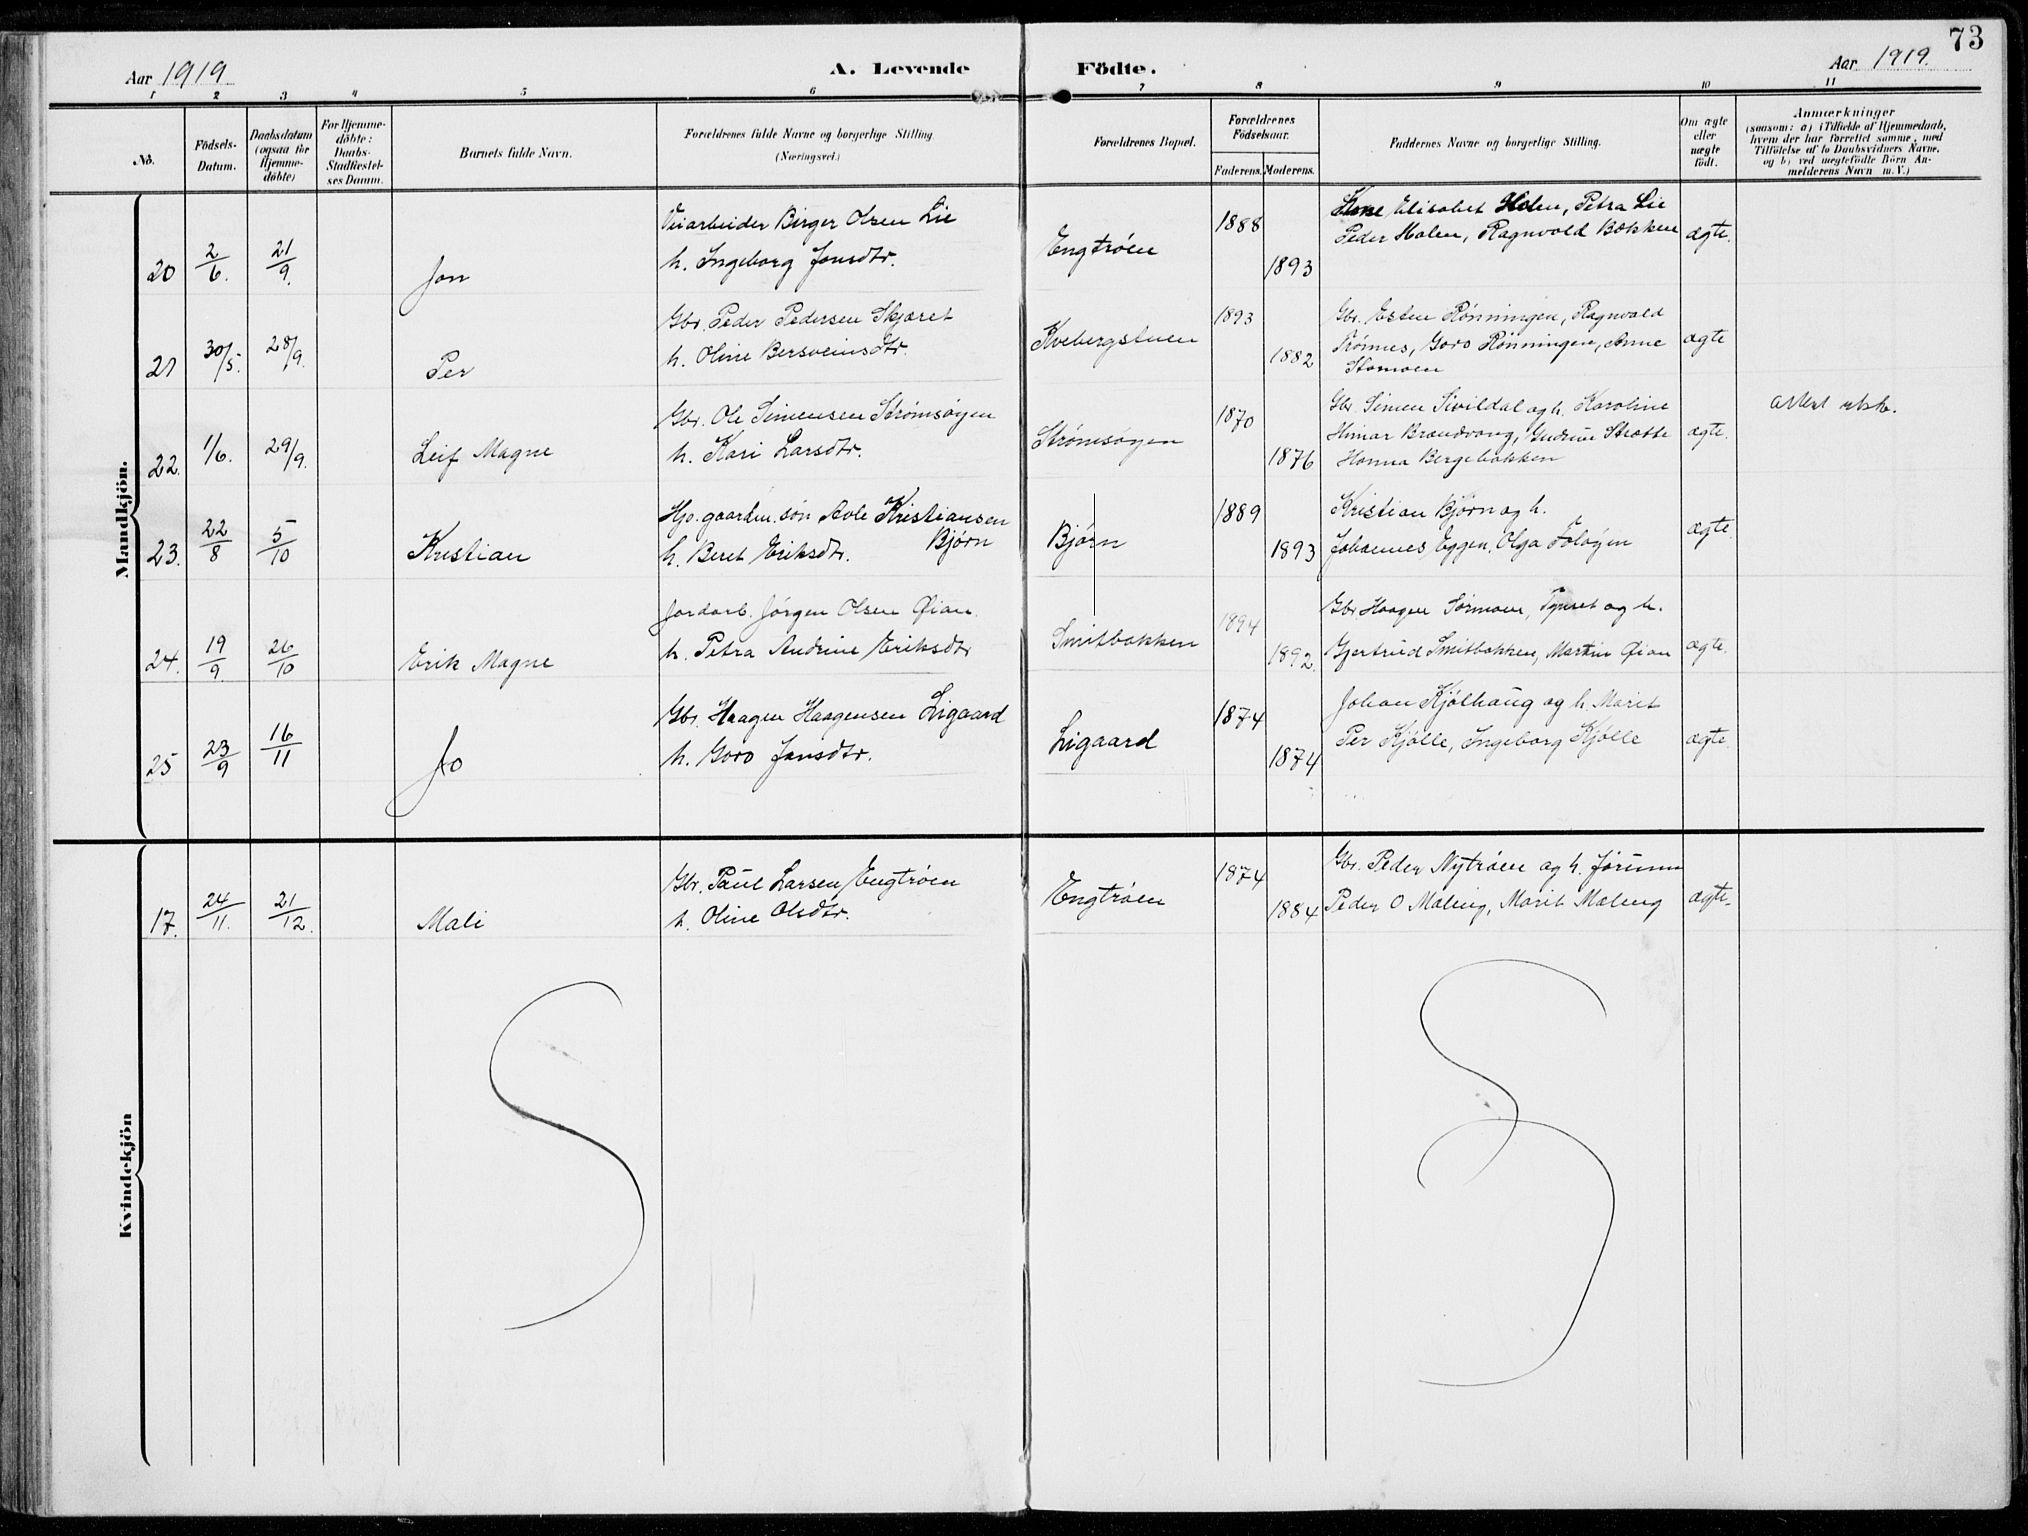 73
Aar 1919
A. Levende
Födte.
Aar 1919.
1 2 3 4 5 6 7 8 9 10 11
No.
Födsels-
Datum.
Daabsdatum
(ogsaa for
Hjemme-
döbte)
For Hjemme-
döbte:
Daabs-
Stadfæstel-
ses Datum.
Barnets fulde Navn.
Forældrenes fulde Navne og borgerlige Stilling.
(Næringsvei.)
Forældrenes Bopæl.
Forældrenes
Födselsaar.
Faderens. Moderens.
Faddernes Navne og borgerlige Stilling.
Om ægte
eller
uægte
født.
Anmærkninger
(saasom: a) i Tilfælde af Hjemmedaab,
hvem der har forrettet samme, med
Tilföielse af to Daabsvidners Navne.
og b) ved uægtefödte Börn An-
melderens Navn m. V.)
Mandkjön.
20 2/6. 21/9. Jon
Veiarbeider Birger Olsen Lie
h. Ingeborg Jonsdtr.
Engtrøen
1888
1893
Elisabet Holen, Petra Lie
Peder Holen, Ragnvald Bækken
ægte.
21 30/5. 28/9. Per
Gbr. Peder Pedersen Skjæret
h. Oline Bersveinsdtr.
Kvebergstuen
1893
1882
Gbr. Esten Rønningen, Ragnvald
Trønnes, Goro Rønningen, Anne
Stamoen
ægte
22. 1/6. 29/9. Leif Magne
Gbr. Ole Simensen Strømsøyen
h. Kari Larsdtr.
Strømsøyen
1870
1876
Gbr. Simen Sivildal og h. Karoline
Brændvang, Gudrun Strætte
Hanna Bergebakken
ægte.
attest utsk.
23. 22/8 5/10 Kristian
Hjo. gaardm. søn Avle Kristiansen
Bjørn
h. Beret Eriksdtr.
Bjørn
1889
1893
Kristian Bjørn og h.
Johannes Eggen, Olga Foløyen
ægte.
24. 19/9. 26/10 Erik Magne
Jordarb. Jørgen Olsen Øian.
h. Petra Andrine Eriksdtr
Smitbakken
1894
1892.
Gbr Haagen Tørmoen, Tynset og h.
Gjertrud Smitbakken, Martin Øian
ægte.
25 23/9 16/11 Jo
Gbr. Haagen Haagensen Ligaard
h. Goro Jonsdtr.
Ligaard
1874
1874
Johan Kjølhaug og h. Marit
Per Kjølle, Ingeborg Kjølle
ægte.
Kvindekjön
17. 24/11. 21/12. Mali
Gbr. Paul Larsen Engtrøen
h. Oline Olsdtr.
Engtrøen
1874
1884
Gbr. Peder Nytrøen og h. Jørunn
Peder O Maleng, Marit Maleng
ægte.